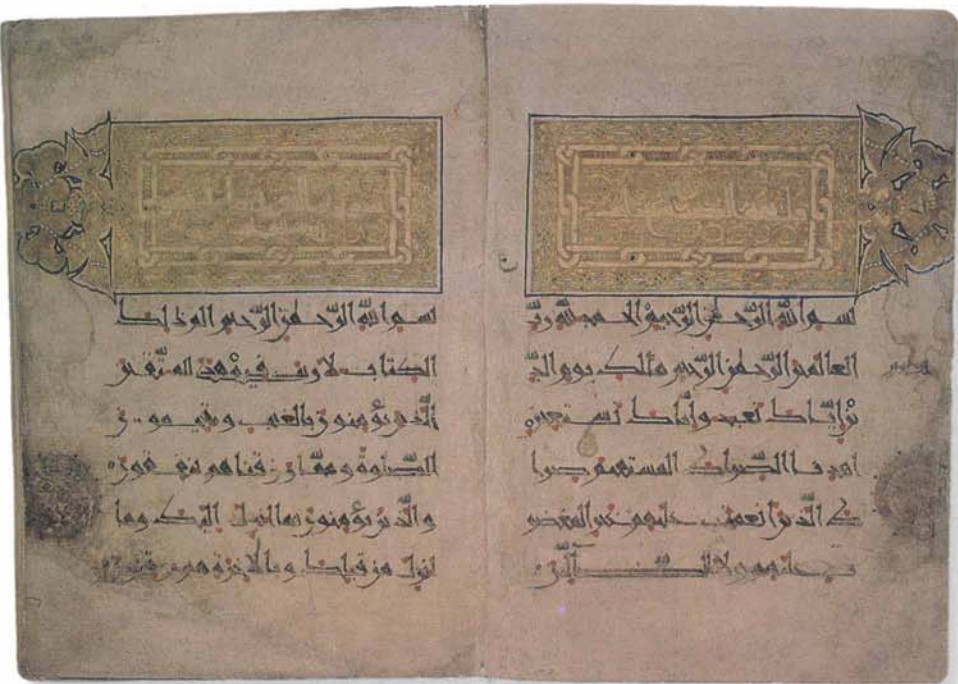 بسم الله الرَّحمٰن الرَّحيم الحمد لله ربّ
العالمين الرَّحمٰن الرَّحيم مالك يوم الدّ
ين إيّاك نعبد وإيّاك نستعين
اهدنا الصّراط المستقيم صرا
ط الّذين أنعمت عليهم غير المغضو
ب عليهم ولا الضّآلّين
بسم الله الرَّحمٰن الرَّحيم الم ذلك
الكتاب لا ريب فيه هدى للمتّقين
الّذين يؤمنون بالغيب ويقيمون
الصّلوة وممّا رزقناهم ينفقون
والّذين يؤمنون بما أنزل إليك وما
أنزل من قبلك وبالآخرة هم يوقنون